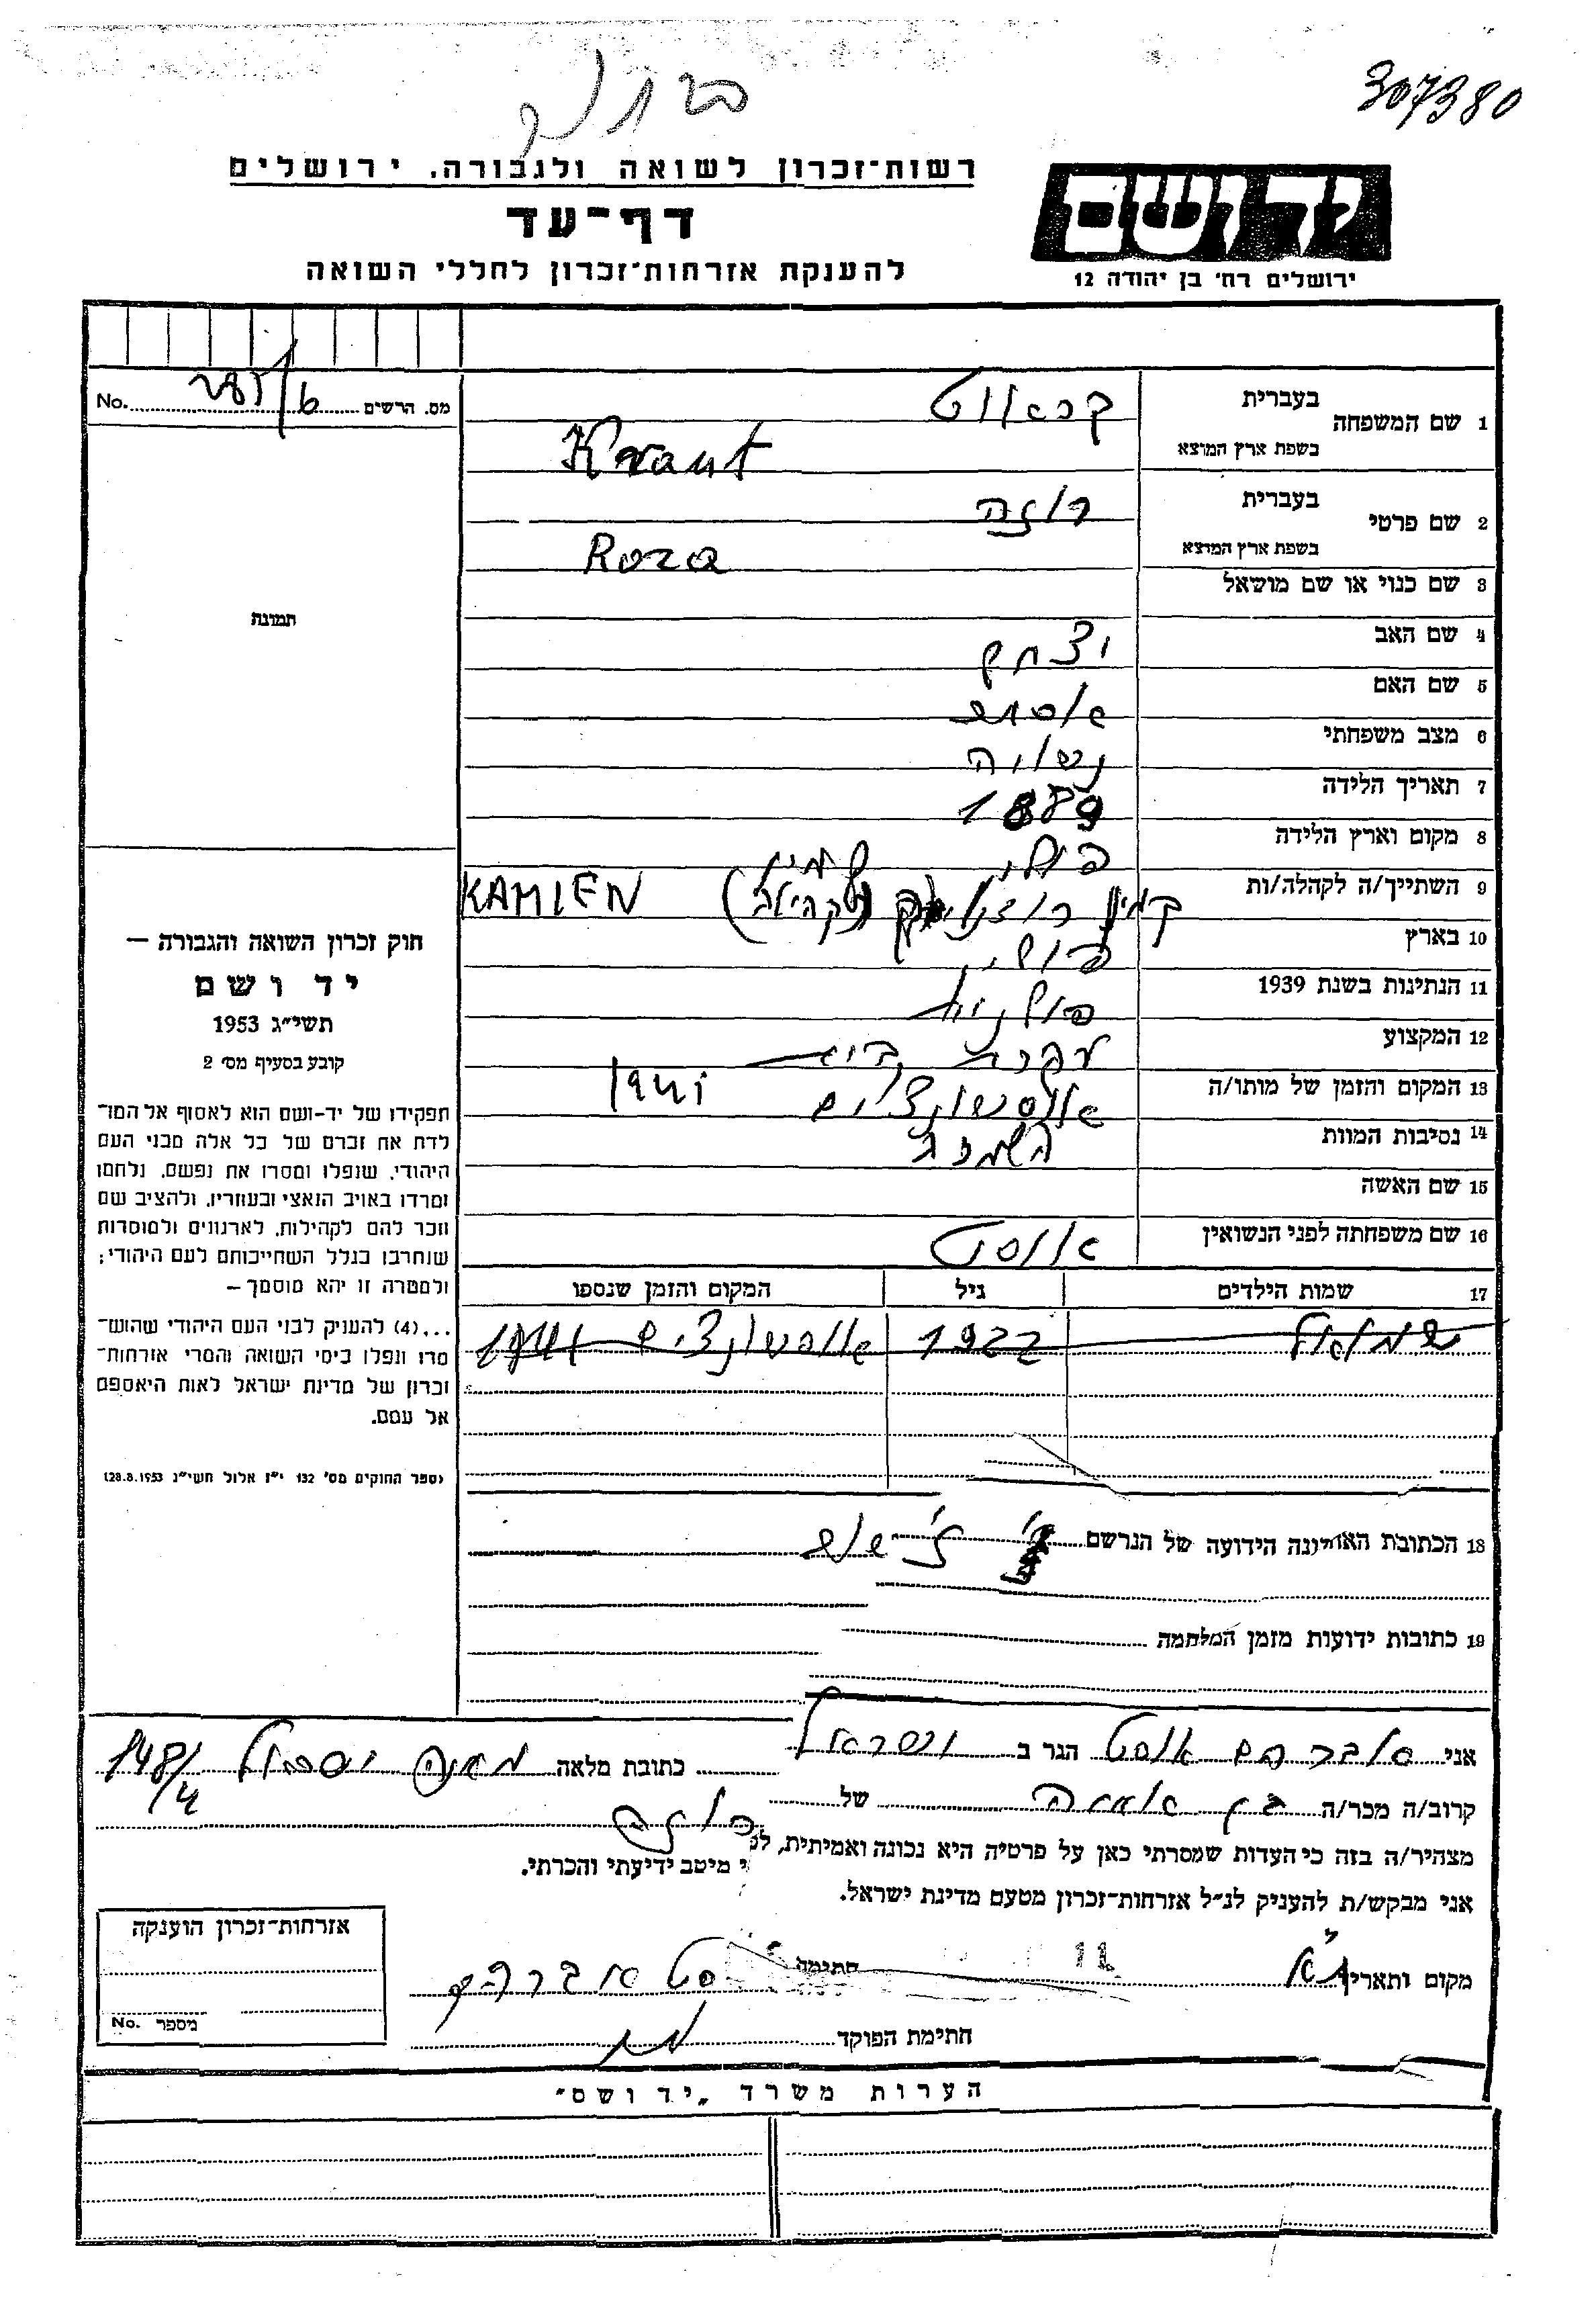 307380
רשות־זכרון לשואה ולגבורה. ירושלים
דף־עד
להענקת אזרחות־זכרון לחללי השואה
יד ושם
ירושלים רח׳ בן יהודה 12
מס. הרשים No.
1 שם המשפחה בעברית קראוט
בשפת ארץ המוצא Kraut
2 שם פרטי בעברית רוזה
בשפת ארץ המוצא Roza
3 שם כנוי או שם מושאל
4 שם האב יצחק
5 שם האם
6 מצב משפחתי נשואה
7 תאריך הלידה 1889
8 מקום וארץ הלידה פולין
9 השתייך/ה לקהלה/ות KAMIEN
10 בארץ פולין
11 הנתינות בשנת 1939 פולנית
12 המקצוע עקרת בית
13 המקום והזמן של מותו/ה אוסשוונצים 1941
14 נסיבות המוות השמדה
15 שם האשה
16 שם משפחתה לפני הנשואין אוסט
17 שמות הילדים גיל המקום והזמן שנספו
שמואל 1922 אוסשוונצים 1941
18 הכתובת האחרונה הידועה של הנרשם
19 כתובות ידועות מזמן המלחמה
תמונה
חוק זכרון השואה והגבורה —
יד ושם
תשי״ג 1953
קובע בסעיף מס׳ 2
תפקידו של יד-ושם הוא לאסוף אל המו־
לדת את זכרם של כל אלה מבני העם
היהודי, שנפלו ומסרו את נפשם, נלחמו
ומרדו באויב הנאצי ובעוזריו, ולהציב שם
וזכר להם לקהילות, לארגונים ולמוסדות
שנחרבו בגלל השתייכותם לעם היהודי;
ולמטרה זו יהא מוסמך —
...(4) להעניק לבני העם היהודי שהוש־
מדו ונפלו בימי השואה והמרי אזרחות־
זכרון של מדינת ישראל לאות היאספם
אל עמם.
(ספר החוקים מס׳ 132 י״ז אלול תשי״ג 28.8.1953)
אני אברהם אוסט הגר ב ישראל כתובת מלאה 148/4
קרוב/ה מכר/ה בן של
רוזה
מצהיר/ה בזה כי העדות שמסרתי כאן על פרטיה היא נכונה ואמיתית, לפי מיטב ידיעתי והכרתי.
אני מבקש/ת להעניק לנ״ל אזרחות־זכרון מטעם מדינת ישראל.
מקום ותאריך חתימה אברהם
חתימת הפוקד
אזרחות־זכרון הוענקה
מספר No.
הערות משרד „יד ושם״